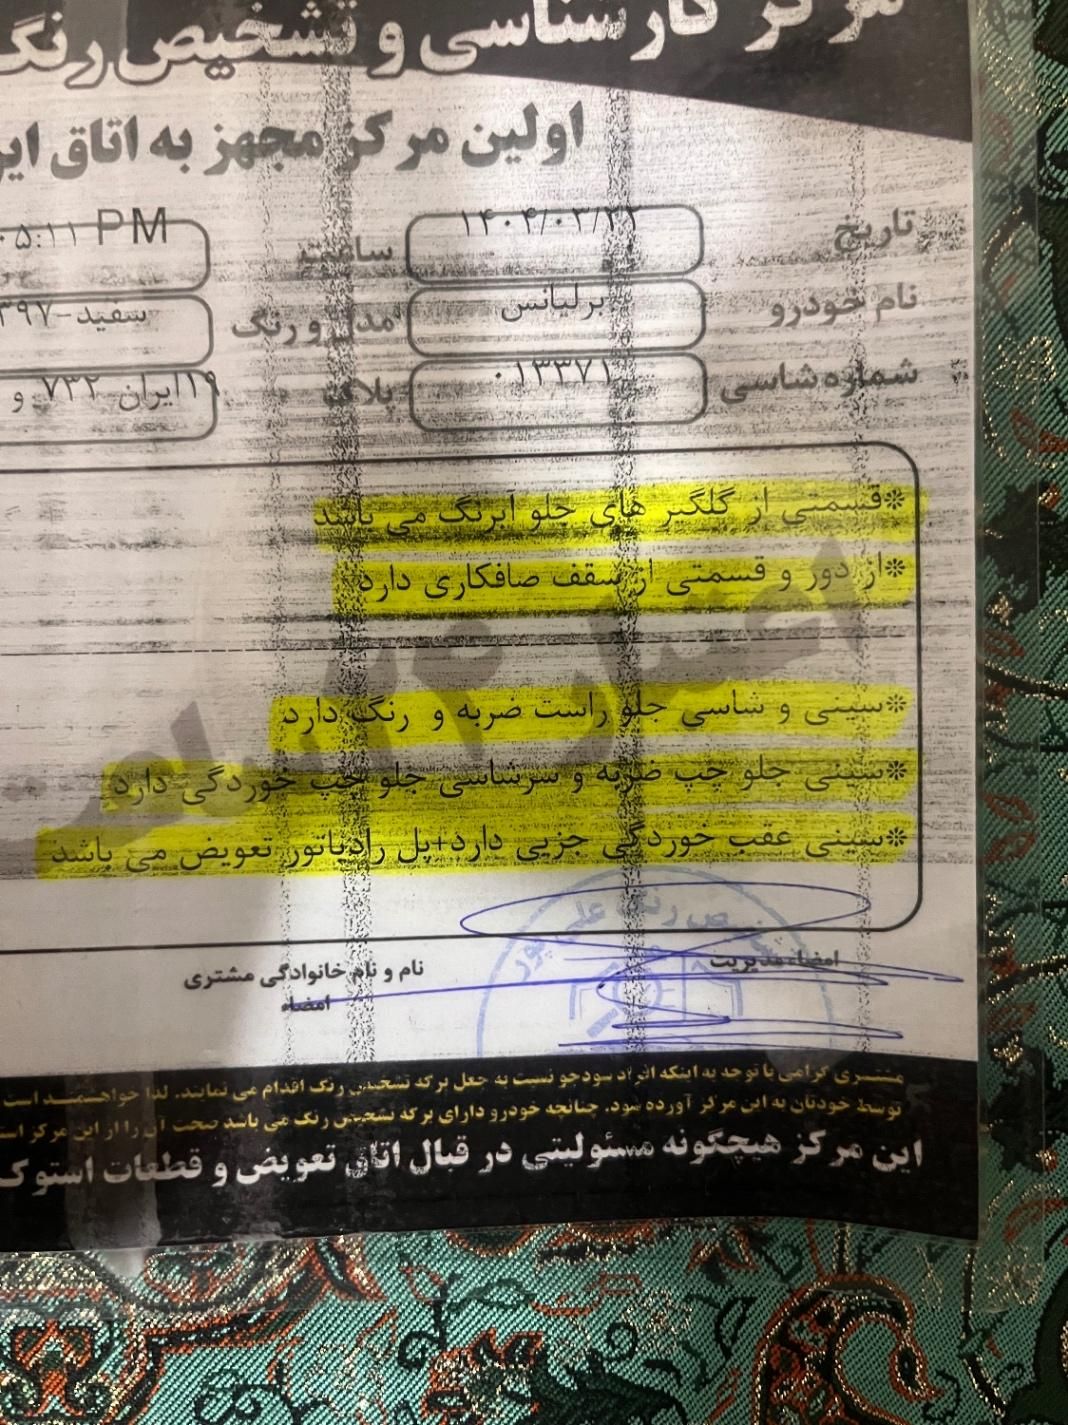 مرکز کارشناسی و تشخیص رنگ
اولین مرکز مجهز به اتاق
تاریخ ۱۴۰۴/۰۲/۲۲ ساعت ۰۵:۱۱ PM
نام خودرو برلیانس مدل و رنگ سفید-۳۹۷
شماره شاسی ۰۱۳۳۷۱ پلاک ۱۹ایران ۷۳۲ و
*قسمتی از گلگیر های جلو آبرنگ می باشد
*از دور و قسمتی از سقف صافکاری دارد
اعتبار ۲۴ ساعت
*سینی و شاسی جلو راست ضربه و رنگ دارد
*سینی جلو چپ ضربه و سرشاسی جلو چپ خوردگی دارد
*سینی عقب خوردگی جزیی دارد+پل رادیاتور تعویض می باشد
تشخیص رنگ علی پور
امضاء مدیریت
نام و نام خانوادگی مشتری
امضاء
مشتری گرامی با توجه به اینکه افراد سودجو نسبت به جعل برگه تشخیص رنگ اقدام می نمایند. لذا خواهشمند است
توسط خودتان به این مرکز آورده شود. چنانچه خودرو دارای برگه تشخیص رنگ می باشد صحت آن را از این مرکز
این مرکز هیچگونه مسئولیتی در قبال اتاق تعویض و قطعات استوک